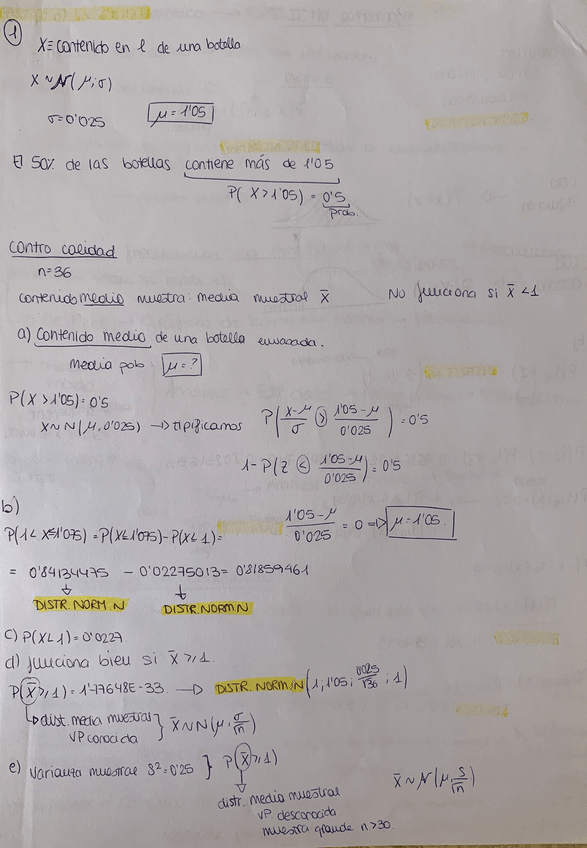 1
X≡contenido en l de una botella
X ~ N(μ, σ)
σ=0'025 μ=1'05
El 50% de las botellas contiene más de 1'05
P(X>1'05) = 0'5
prob.
Contro calidad
n=36
contenido medio muestra: media muestral X̄ No funciona si X̄ <1
a) Contenido medio de una botella envasada.
Media pob: μ=?
P(X>1'05)=0'5
X~N(μ, 0'025) → tipificamos P(X-μ/σ > 1'05-μ/0'025) = 0'5
1-P(Z < 1'05-μ/0'025) = 0'5
1'05-μ/0'025 = 0 => μ=1'05.
b)
P(1< X≤1'075) = P(X≤1'075) - P(X≤1) =
= 0'84134475 - 0'02275013 = 0'81859461
DISTR.NORM.N DISTR.NORM.N
c) P(X<1) = 0'0227
d) funciona bien si X̄ ≥1.
P(X̄≥1) = 1'77648E-33 → DISTR.NORM.N(1; 1'05; 0'025/√36; 1)
dist. media muestral
VP conocida } X̄~N(μ, σ/√n)
e) Varianza muestral S²=0'25 } P(X̄≥1)
X̄ ~ N(μ, S/√n)
distr. media muestral
VP. desconocida
muestra grande n>30.